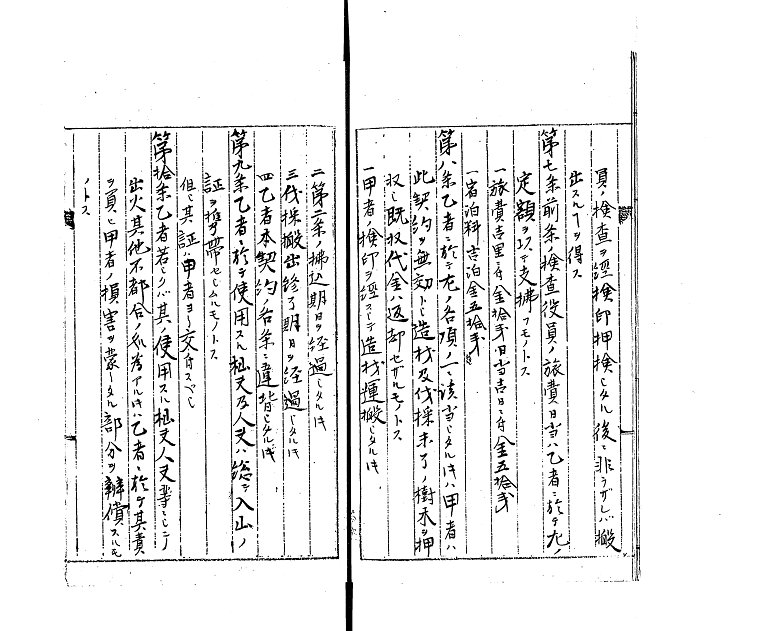 員ノ検査ヲ經検印押捺シタル後ニ非ラザレバ搬
出スルヿヲ得ス
第七条前条ノ検査役員ノ旅費日当ハ乙者ニ於テ左ノ
定額ヲ以テ支拂フモノトス
一旅費壱里ニ付金拾弐 日当壱日ニ付金五拾
一宿泊料壱泊金五拾
第八条乙者ニ於テ左ノ各項ノ一ニ該当シタル片ハ甲者ハ
此契約ヲ無効トシ造材及伐採未了ノ樹木ヲ押
収シ既収代金ハ返却セザルモノトス
一甲者ノ検印ヲ經スシテ造材運搬シタル片
二第二条ノ拂込期日ヲ經過シタル片
三伐採搬出終了期日ヲ経過シタル片
四乙者本契約ノ各条ニ違背シタル片
第九条乙者ニ於テ使用スル杣夫及人夫ハ總テ入山ノ
証ヲ携帯セシムルモノトス
但シ其証ハ甲者ヨリ交付スベシ
第拾条乙者若シクハ其ノ使用スル杣夫人夫等ニシテ
出火其他不都合ノ所為アル片ハ乙者ニ於テ其責
ヲ負ヒ甲者ノ損害ヲ蒙リタル部分ヲ辨償スルモ
ノトス